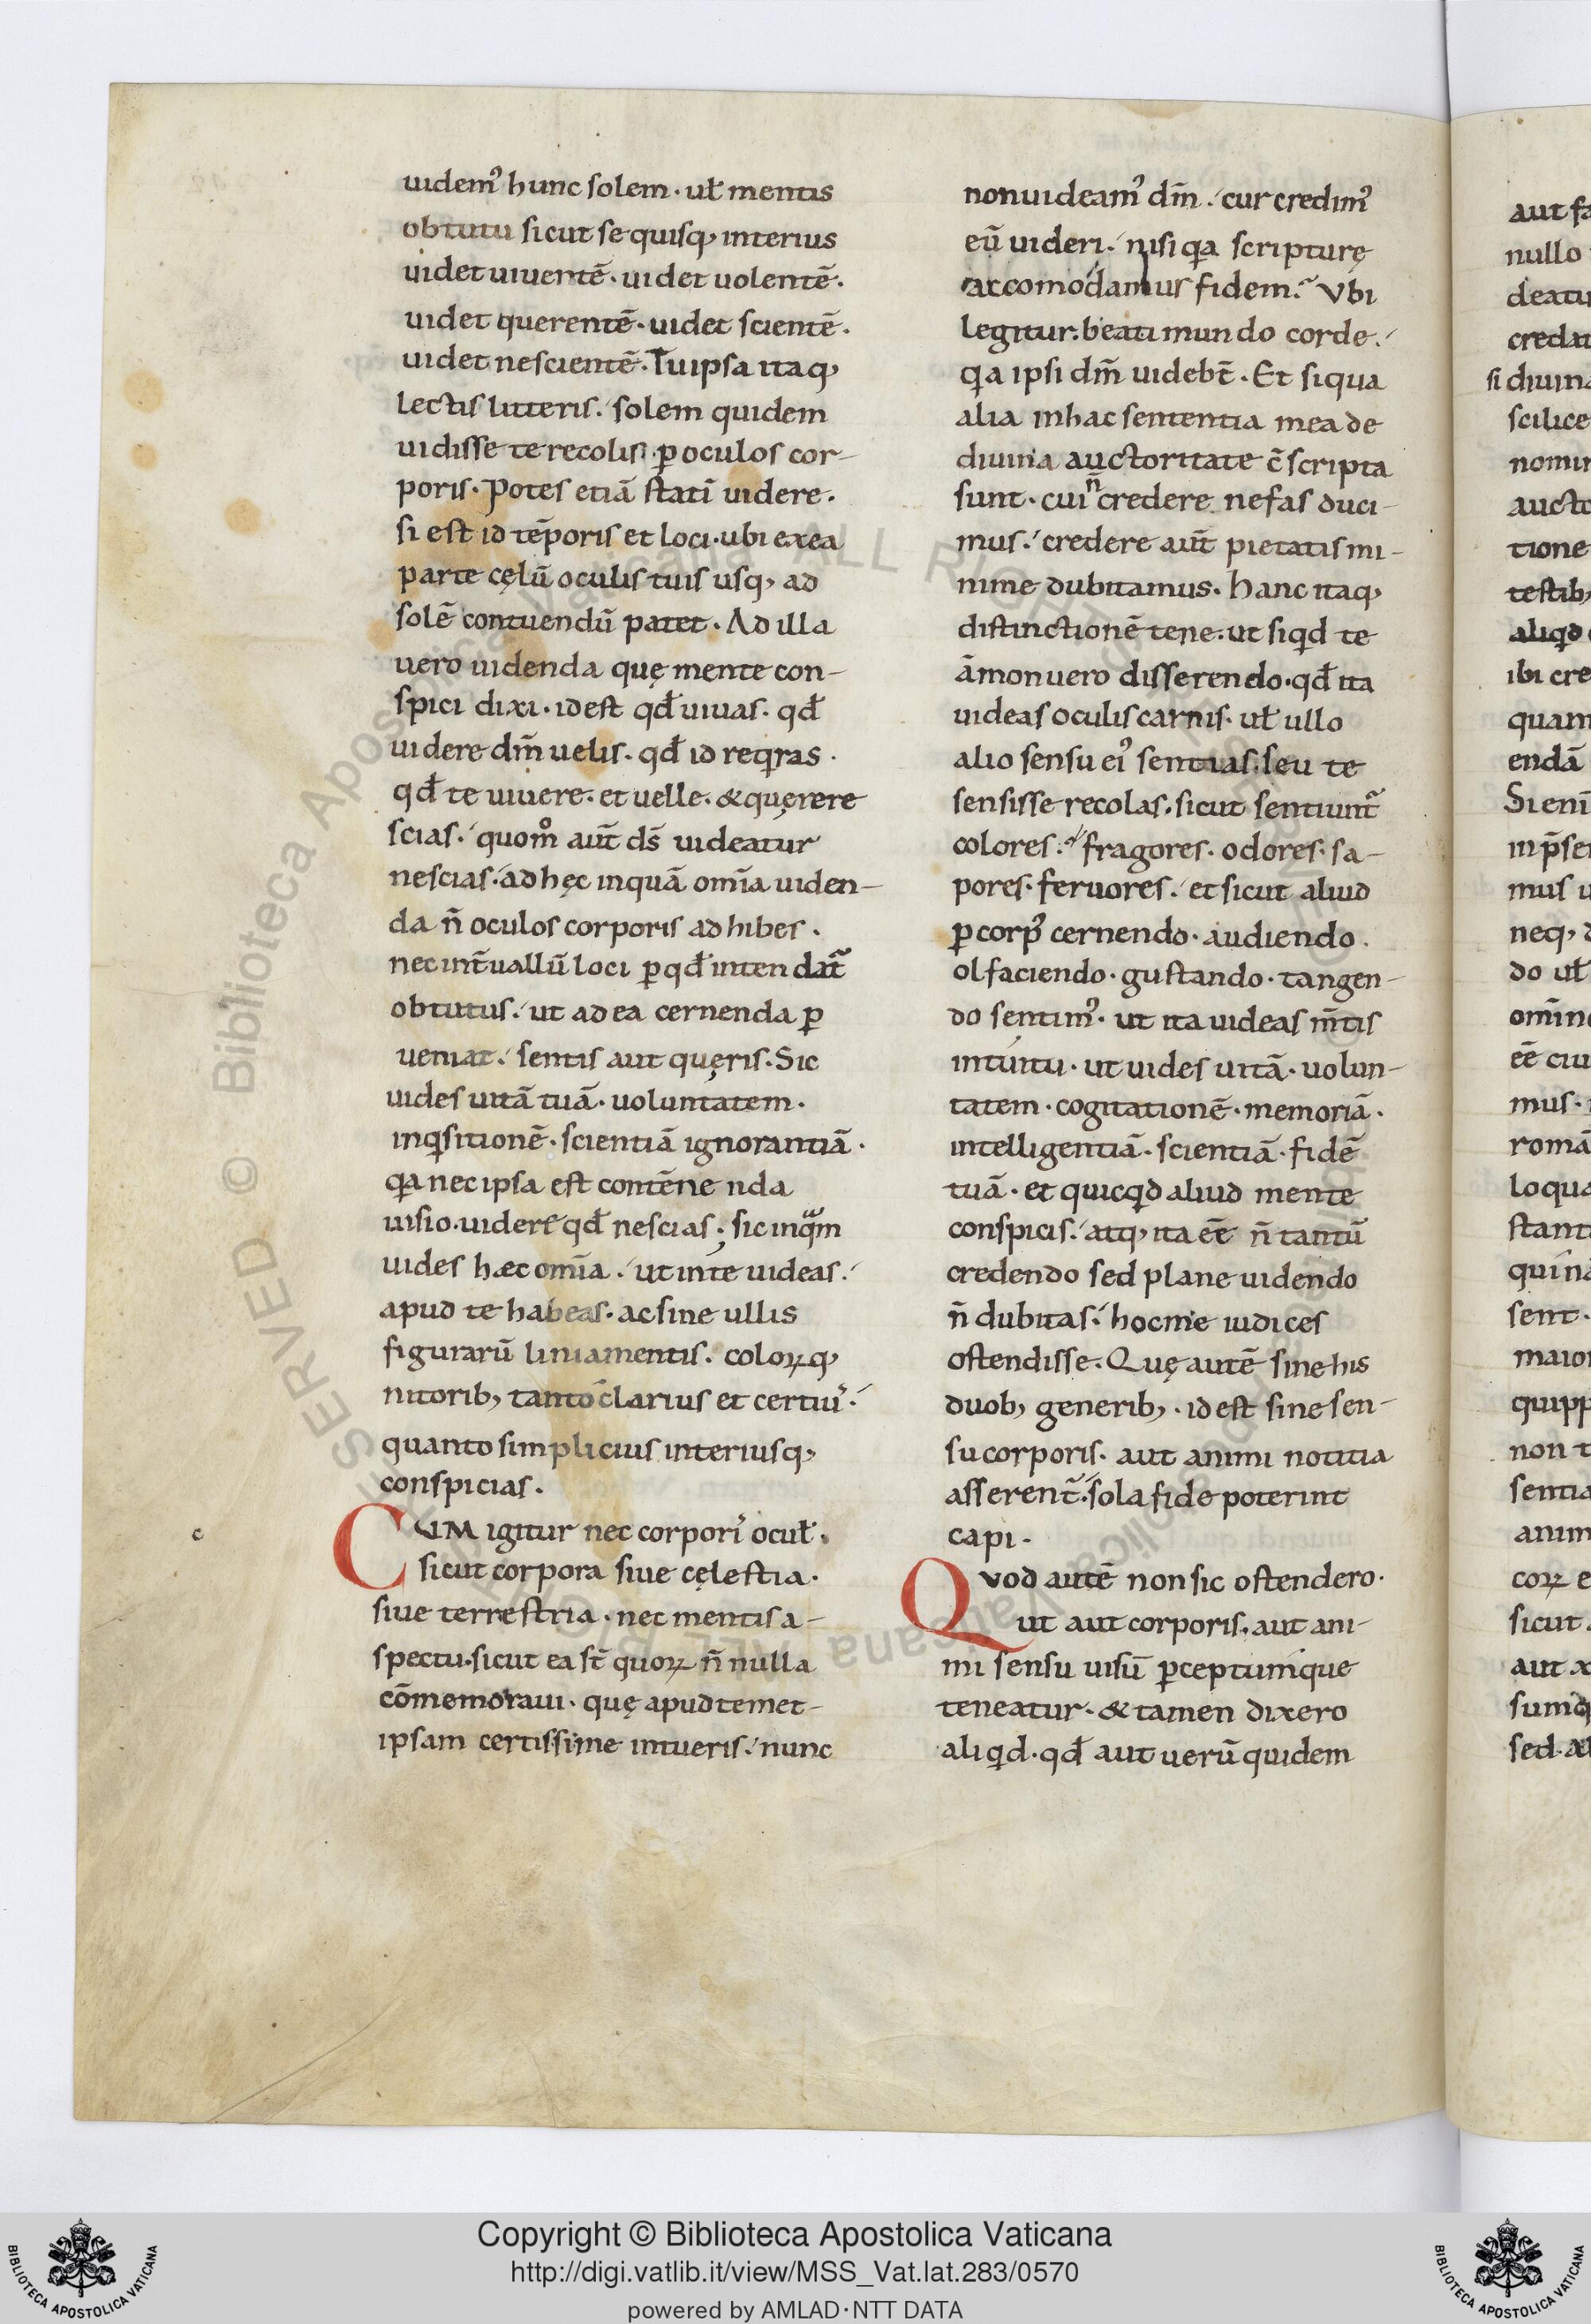 uidem᷒ hunc solem · ul̄ mentis
obtutu sicut se quisq, interius
uidet uiuentē · uidet uolentē ·
uidet querentē · uidet scientē ·
uidet nescientē · Tu ipsa itaq,
lectis litteris · solem quidem
uidisse te recolis ꝑ oculos cor-
poris · Potes etiā statī uidere ·
si est id tēporis et loci · ubi ex ea
parte cęlū oculis tuis usq, ad
solē contuendū patet · Ad illa
uero uidenda quę mente con-
spici dixi · id est qđ uiuas · qđ
uidere dm̄ uelis · qđ id reqras ·
qđ te uiuere · et uelle · & quęrere
scias · quom̊ aut̄ ds̄ uideatur
nescias · ad hęc inquā om̄ia uiden-
da n̄ oculos corporis adhibes ·
nec int̄uallū loci ꝑ qđ intendat᷑
obtutus · ut ad ea cernenda ꝑ
ueniat · sentis aut quęris · Sic
uides uitā tuā · uoluntatem ·
inqsitionē · scientiā ignorantiā ·
qa nec ipsa est contēnenda
uisio · uidere qđ nescias ; sic inqm
uides hæc om̄ia · ut in te uideas ·
apud te habeas · ac sine ullis
figurarū liniamentis · coloꝝq,
nitorib, tanto clarius et certiu᷒ ·
quanto simplicius interiusq,
conspicias ·
c
CUM igitur nec corpori᷒ ocul̄ ·
sicut corpora siue cęlestia ·
siue terrestria · nec mentis a-
spectu · sicut ea st̄ quoꝝ n̄ nulla
cōmemoraui · quę apud temet-
ipsam certissime intueris · nunc
non uideam᷒ dm̄ · cur credim᷒
eū uideri · nisi qa scripturę
accomodamus fidem · Vbi
legitur · beati mundo corde ·
qa ipsi dm̄ uidebt̄ · Et si qua
alia in hac sententia mea de
diuina auctoritate c̄scripta
sunt · cui n̄ credere nefas duci-
mus · credere aut̄ pietatis mi-
nime dubitamus · Hanc itaq,
distinctionē tene · ut siqd te
āmonuero disserendo · qđ ita
uideas oculis carnis · ul̄ ullo
alio sensu ei᷒ sentias · seu te
sensisse recolas · sicut sentiunt᷑
colores · fragores · odores · sa-
pores · feruores · et sicut aliud
ꝑ corp᷒ cernendo · audiendo ·
olfaciendo · gustando · tangen-
do sentim᷒ · ut ita uideas m̄tis
intuitu · ut uides uitā · uolun-
tatem · cogitationē · memoriā ·
intelligentiā · scientiā · fidē
tuā · et quicqd aliud mente
conspicis · atq, ita eē n̄ tantū
credendo sed plane uidendo
n̄ dubitas · hoc me iudices
ostendisse · Quę autē sine his
duob, generib, · id est sine sen-
su corporis · aut animi notitia
asserent᷑ · sola fide poterint
capi ·
Quod autē non sic ostendero ·
ut aut corporis · aut ani-
mi sensu uisū ꝑceptumque
teneatur · & tamen dixero
aliqd · qđ aut uerū quidem
aut fa
nullo
deatu
credat
si diuina
scilice
nomin
aucto
tione
testib,
aliqd
ibi cre
quam
endā
Si eni
in p̄se
mus u
neq, d
do ul̄
omin
eē ciu
mus ·
romā
loqua
stant
qui na
sent ·
maior
quipp
non t
sentia
anim
coꝝ e
sicut
aut x
sumq
sed
Copyright © Biblioteca Apostolica Vaticana
http://digi.vatlib.it/view/MSS_Vat.lat.283/0570
powered by AMLAD·NTT DATA
BIBLIOTECA APOSTOLICA VATICANA
BIBLIOTECA APOSTOLICA VATICANA